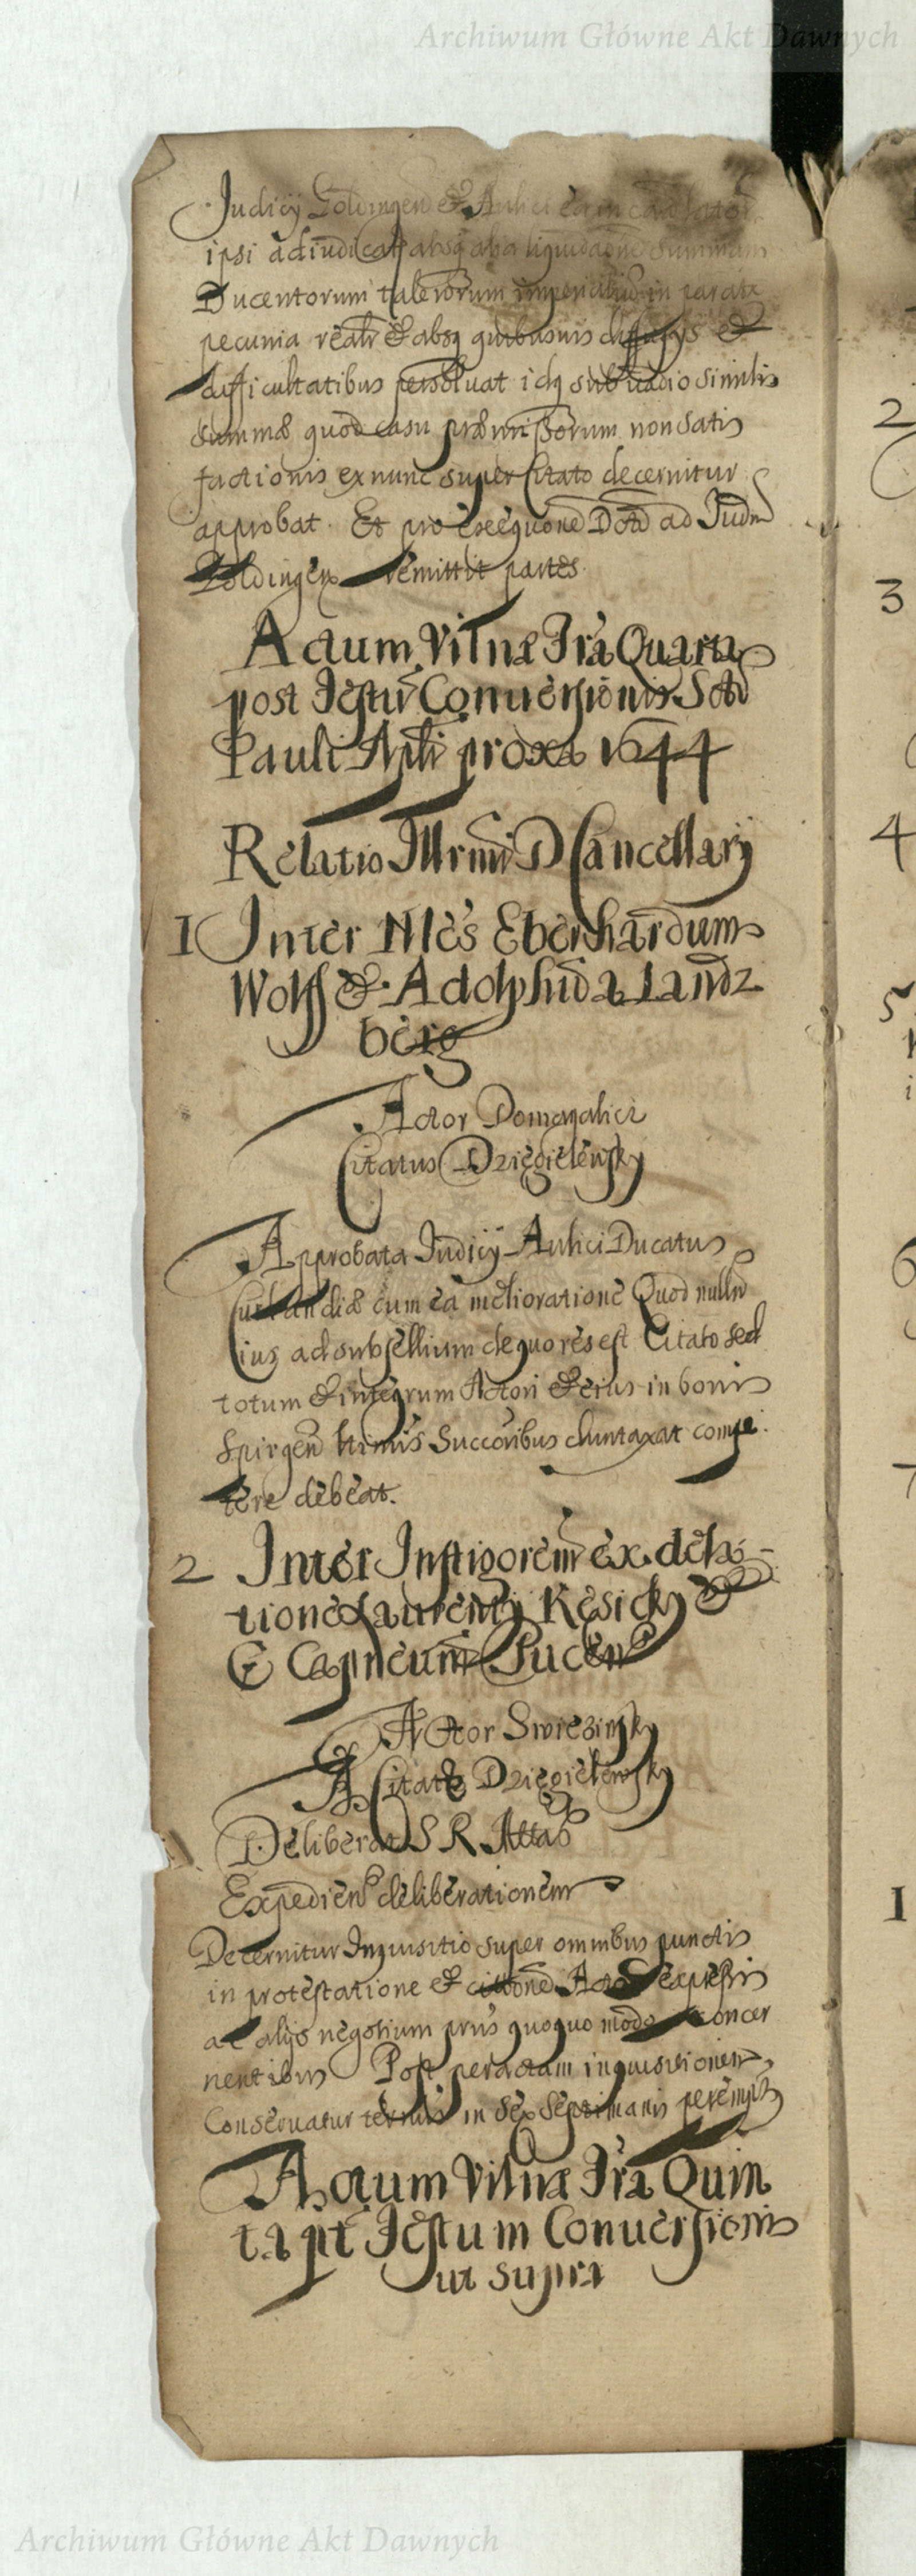 Archiwum Główne Akt Dawnych
Judicij Goldingen & Aulici
ipsi adiudicat absq alia liquidaone summam
Ducentorum talerorum imperialiu in parata
pecunia realr & absq quibusuis diffugijs et
difficultatibus persoluat idq sub vadio similis
summæ quod casu præmissorum non satis
factionis ex nunc super Citato decernitur
approbat. Et pro exeequone Dctd ad Judm
Goldingen remittit partes
Actum Vilnæ Fra Quarta
post Festu Conuersionis Scti
Pauli Apli proxa 1644
Relatio Illrmi D Cancellarij
1 Inter Nles Eberhardum
Wolff & Adolphu a Landz
berg
Actor Domagalicz
Citatus Dzięgielewsky
Approbata Judicij Aulici Ducatus
Curlandiæ cum ea melioratione Quod nullu
ius ad subsellium de quo res est Citato sed
totum & integrum Actori & eius in bonis
Spirgen ltimis Succoribus duntaxat compe
tere debeat.
2 Inter Instigorem ex dela-
tione Laurentij Kesicky &
E Capneum Pucen
Actor Swiezinsky
A Citat Dzięgielewsky
Deliberat S R Mttas
Expedien deliberationem
Decernitur Inquisitio super omnibus punctis
in protestatione & citione Acto expressis
ac alijs negotium prius quoquo modo concer
nentibus Post peractam inquisitionem
Conseruatur terminus in sex septimanis peremptr
Actum Vilnæ Fra Quin
ta pt Festum Conuersionis
ut supra
2
3
4
5
6
7
1
Archiwum Główne Akt Dawnych